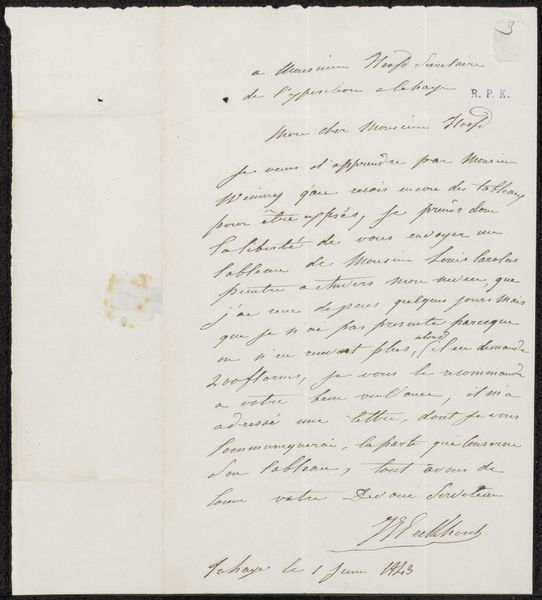 3
a Monsieur Hoofd Secretaire
de l'xposition a lahaye
R. P. K.
Mon cher Monsieur Hoofd
Je viens d'apprendre par Monsieur
que encore des tableaux
pour être je prends donc
la liberté de vous envoyer un
tableau de Monsieur Louis
peintre a Anvers mon neveu, que
j'ai recu depuis quelques jours mais
que je n'ai pas presenté parceque
on n'en recevait plus, abord il en demande
200 florins, je vous le recommande
a votre bien veillance, il m'a
adressé une lettre, dont je vous
communiquerai, la partie que conserne
son tableau, tout avons de
votre Devoué Serviteur
JJEeckhout
Lahaye le 1 Juin 1843